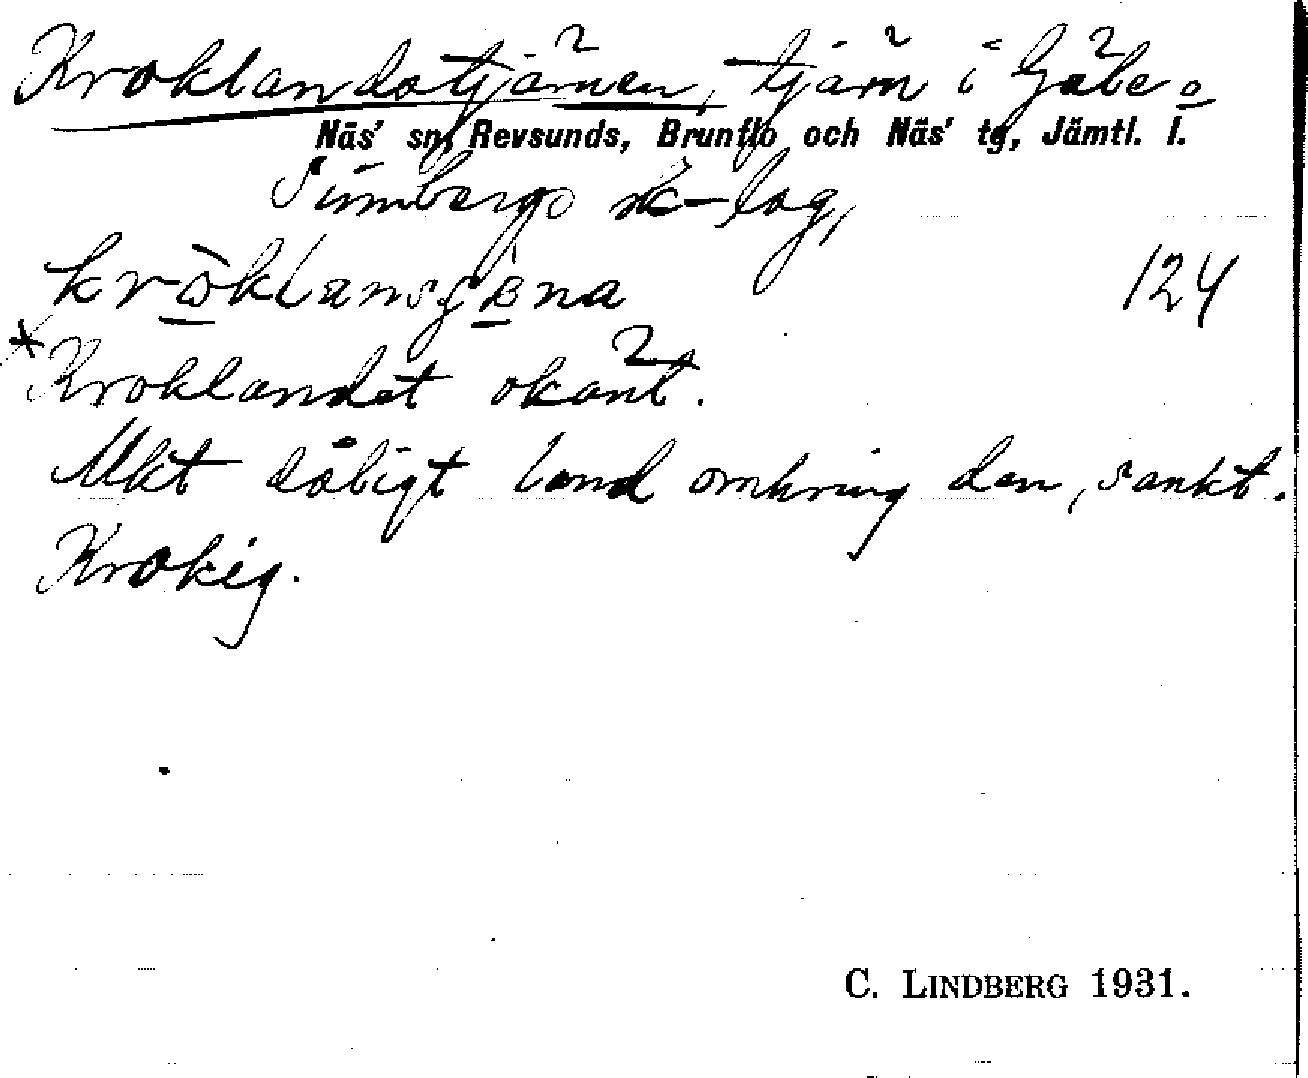 Kroklandstjärnen, tjärn i Gäle o
Näs' sn, Revsunds, Brunflo och Näs' tg, Jämtl. l.
sk-lag,
124
*Kroklandet okänt.
Mkt dåligt land omkring den, sankt.
Krokig.
C. LINDBERG 1931.